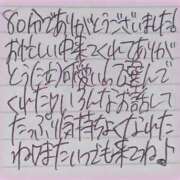 80分でありがとうございました!
お忙しい中来てくれてありが
とう(女)可愛いって喜んで
くれたね!いろんなお話して
たっぷり気持ちよくなれた
ね♡またいつでも来てね♪